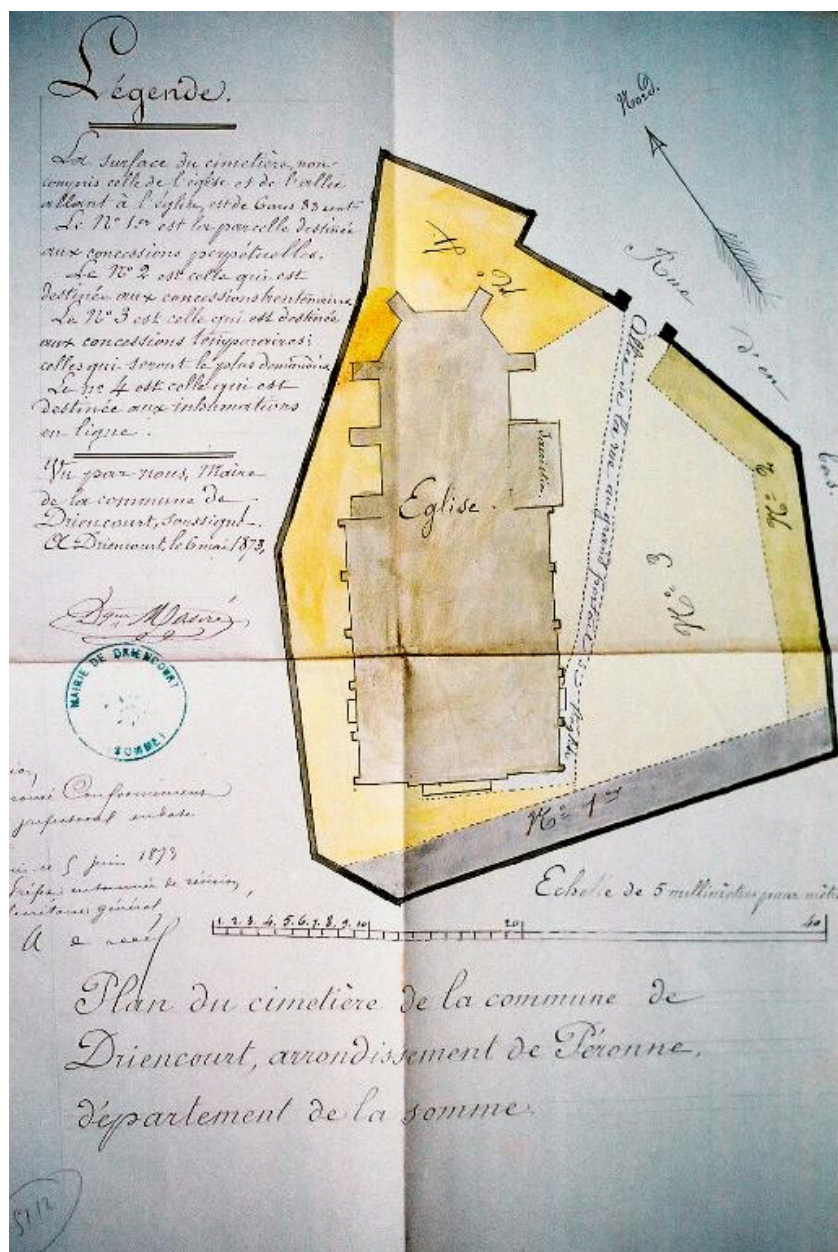 Légende.
La surface du cimetière, non
compris celle de l'église et de l'allée
allant à l'église, est de 6 ares 33 cent
Le N° 1er est la parcelle destinée
aux concessions perpétuelles.
Le N° 2 est celle qui est
destinée aux concessions trentenaires
Le N° 3 est celle qui est destinée
aux concessions temporaires;
celles qui seront le plus demandées
Le n° 4 est celle qui est
destinée aux inhumations
en ligne.
Vu par nous, Maire
de la commune de
Driencourt, soussigné.
A Driencourt, le 6 mai 1873,
MAIRIE DE DRIENCOURT
(SOMME)
Conformément
préfectoral en date
5 juin 1873
général
Nord.
Rue d'en bas
N° 4
Eglise.
Sacristie
Allée de la rue au grand portail de l'église
N° 2
N° 3
N° 1er
Echelle de 5 millimètres pour mètre
1. 2. 3. 4. 5. 6. 7. 8. 9. 10 20 40
Plan du cimetière de la commune de
Driencourt, arrondissement de Péronne,
département de la somme.